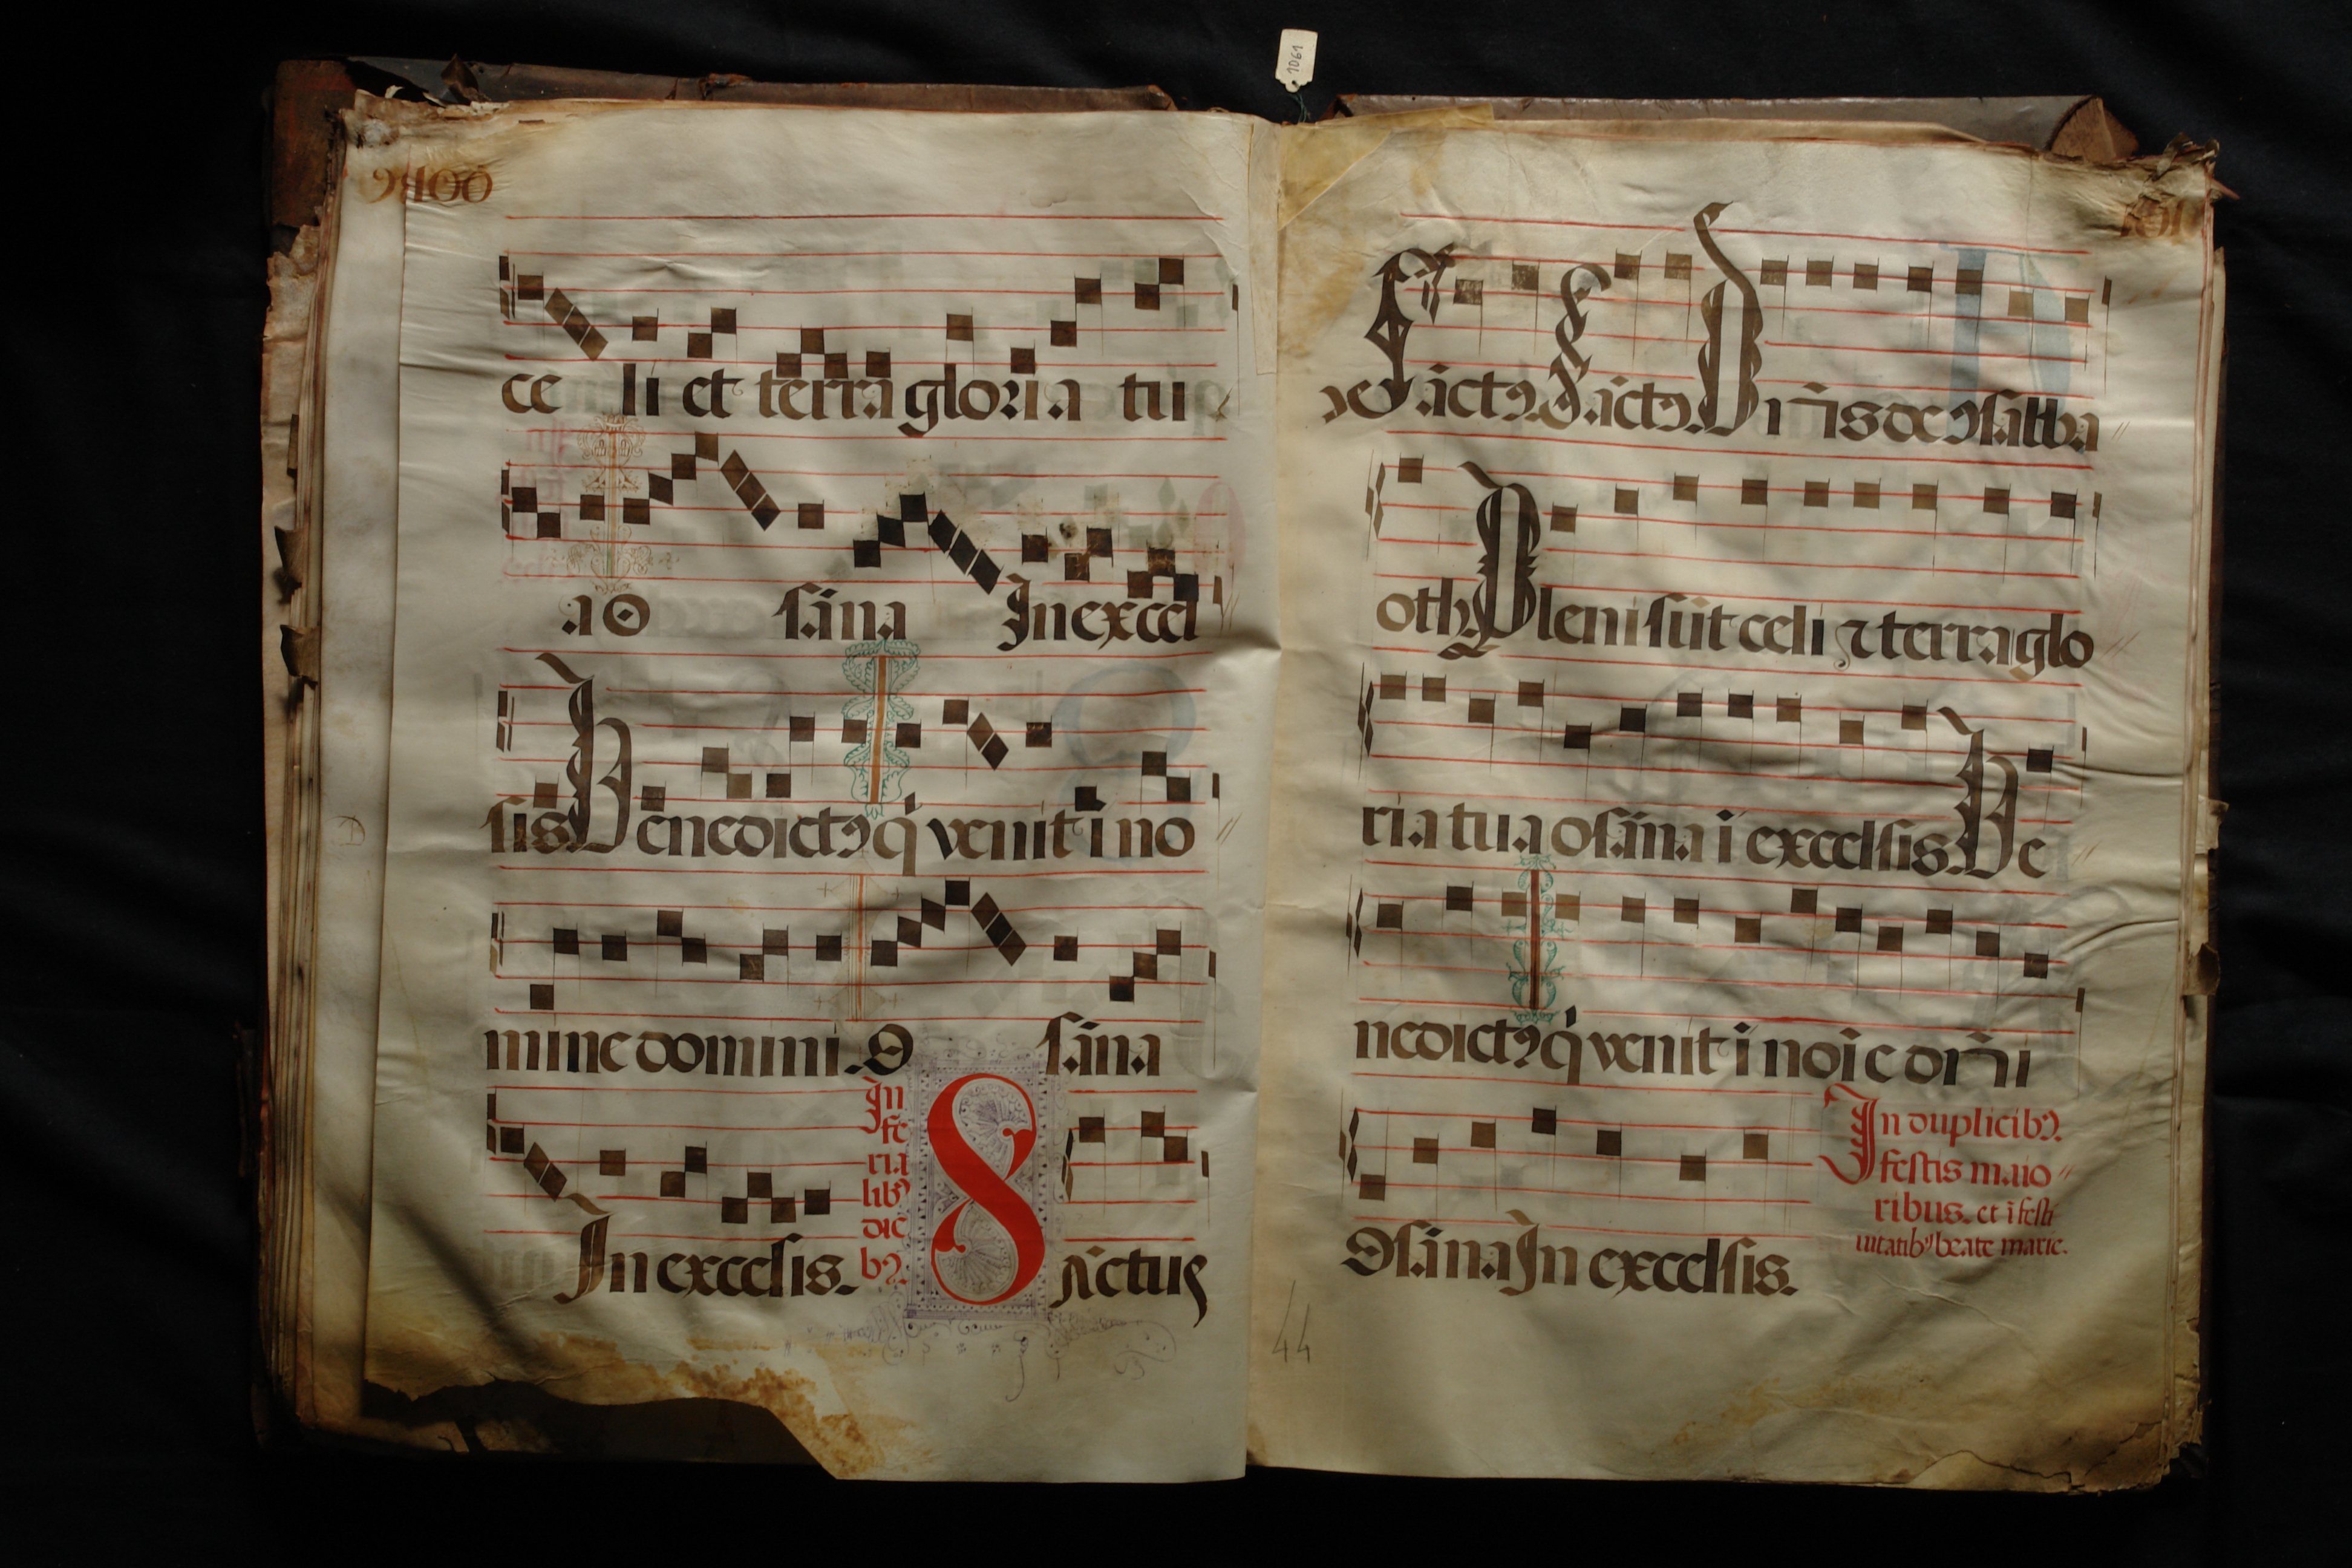 1061
ce li et terra gloria tu
a o sāna In excel
sis Benedictꝰ q̇ venit ī no
mine domini. O sāna
In excelsis.
In
fe
ria
libꝰ
die
bꝰ.
Sāctus
Sāctꝰ. Sāctꝰ. Dn̄s deꝰ sabba
oth. Pleni sūt celi ⁊ terra glo
ria tua osāna ī excelsis. Be
nedictꝰ q̇ venit ī noīe dn̄i
Osāna In excelsis.
In duplicibꝰ.
festis maio
ribus. et ī festi
uitatibꝰ beate marie.
44